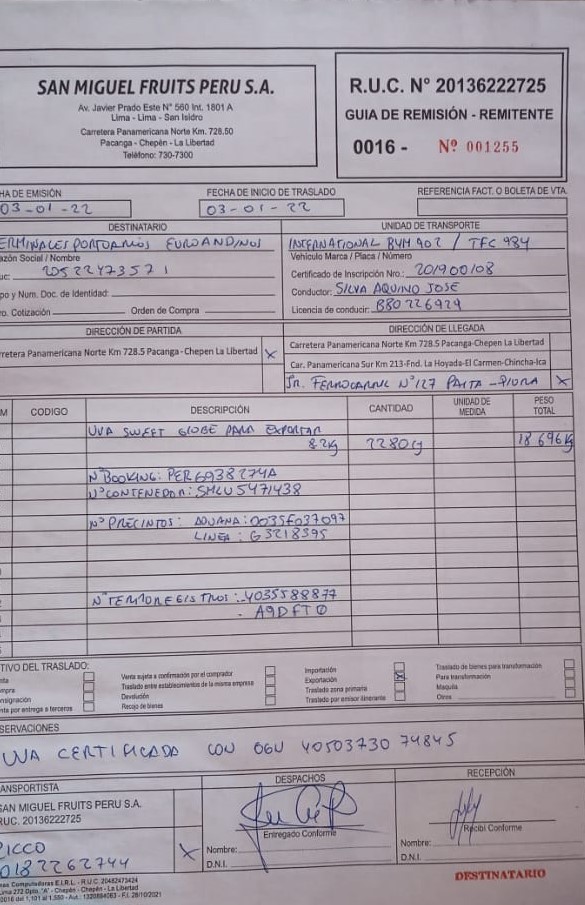 SAN MIGUEL FRUITS PERU S.A.
Av. Javier Prado Este N° 560 Int. 1801 A
Lima - Lima - San Isidro
Carretera Panamericana Norte Km. 728.50
Pacanga - Chepén - La Libertad
Teléfono: 730-7300
R.U.C. N° 20136222725
GUIA DE REMISIÓN - REMITENTE
0016 - Nº 001255
HA DE EMISIÓN
03-01-22
FECHA DE INICIO DE TRASLADO
03-01-22
REFERENCIA FACT. O BOLETA DE VTA.
DESTINATARIO
ERMINALES PORTUARIOS EUROANDINOS
azón Social / Nombre
uc: 20522473571
po y Num. Doc. de Identidad:
ro. Cotización: Orden de Compra:
UNIDAD DE TRANSPORTE
INTERNATIONAL BVH 902 / TFC 984
Vehículo Marca / Placa / Número
Certificado de Inscripción Nro.: 201900108
Conductor: SILVA AQUINO JOSE
Licencia de conducir: B80226929
DIRECCIÓN DE PARTIDA
rretera Panamericana Norte Km 728.5 Pacanga-Chepen La Libertad X
DIRECCIÓN DE LLEGADA
Carretera Panamericana Norte Km 728.5 Pacanga-Chepen La Libertad
Car. Panamericana Sur Km 213-Fnd. La Hoyada-El Carmen-Chincha-Ica
Jr. FERROCARRIL N°127 PAITA - PIURA X
M CODIGO DESCRIPCIÓN CANTIDAD UNIDAD DE MEDIDA PESO TOTAL
UVA SWEET GLOBE PARA EXPORTAR
8.2kg 2280 18 696 kg
N° BOOKING: PER6938274A
N° CONTENEDOR: SMCU5471438
N° PRECINTOS: ADUANA: 0035F037097
LINEA: G3218395
N° TERMOREGISTROS: 4035588877
- A9DFT0
TIVO DEL TRASLADO:
nta
mpra
nsignación
nta por entrega a terceros
Venta sujeta a confirmación por el comprador
Traslado entre establecimientos de la misma empresa
Devolución
Recojo de bienes
Importación
Exportación X
Traslado zona primaria
Traslado por emisor itinerante
Traslado de bienes para transformación
Para transformación
Maquila
Otros
SERVACIONES
UVA CERTIFICADA CON GGN 40503730 74845
RANSPORTISTA
SAN MIGUEL FRUITS PERU S.A.
RUC. 20136222725
RICCO
0182262744
X
DESPACHOS
Entregado Conforme
Nombre:
D.N.I.
RECEPCIÓN
Recibí Conforme
Nombre:
D.N.I.
DESTINATARIO
mas Computadoras E.I.R.L. - R.U.C. 20482473424
Lima 272 Dpto. "A" - Chepén - Chepén - La Libertad